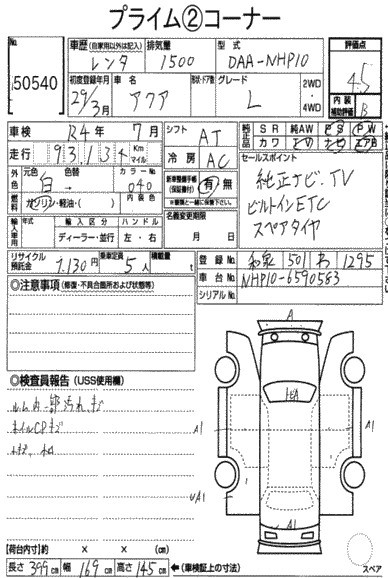 プライム②コーナー
No. 50540
車歴(自家用以外は記入) レンタ
排気量 1500
型式 DAA-NHP10
評価点 4.5
初度登録年月 29/3月
車名 アクア
形状・ドア数
グレード L
2WD・4WD
内装補助評価 B
車検 R4年7月
シフト AT
純正品 SR 純AW PS PW
カワ TV ナビ エアB
走行 93,134 Km マイル
冷房 AC
セールスポイント
純正ナビ.TV
ビルトインETC
スペアタイヤ
外色 元色 白→ 色替 カラーNo 040
燃料 ガソリン・軽油・( ) 内装色
新車整備手帳(保証書付) 有・無
※書類と一緒に保管下さい
輸入車用 年式 輸入区分 ハンドル
ディーラー・並行 左・右
名義変更期限
月 日
リサイクル預託金 7,130円
乗車定員 5人
積載量 t
登録No 和泉 501 わ 1295
車台No. NHP10-6590583
シリアルNo.
◎注意事項(修復・不具合箇所および状態等)
◎検査員報告(USS使用欄)
ルーム内一部汚れ、キズ
ホイルCPキズ
A
A1
A1
UA1
A1
【荷台内寸】約 × × (cm)
長さ 399cm 幅 169cm 高さ 145cm ←(車検証上の寸法)
スペア